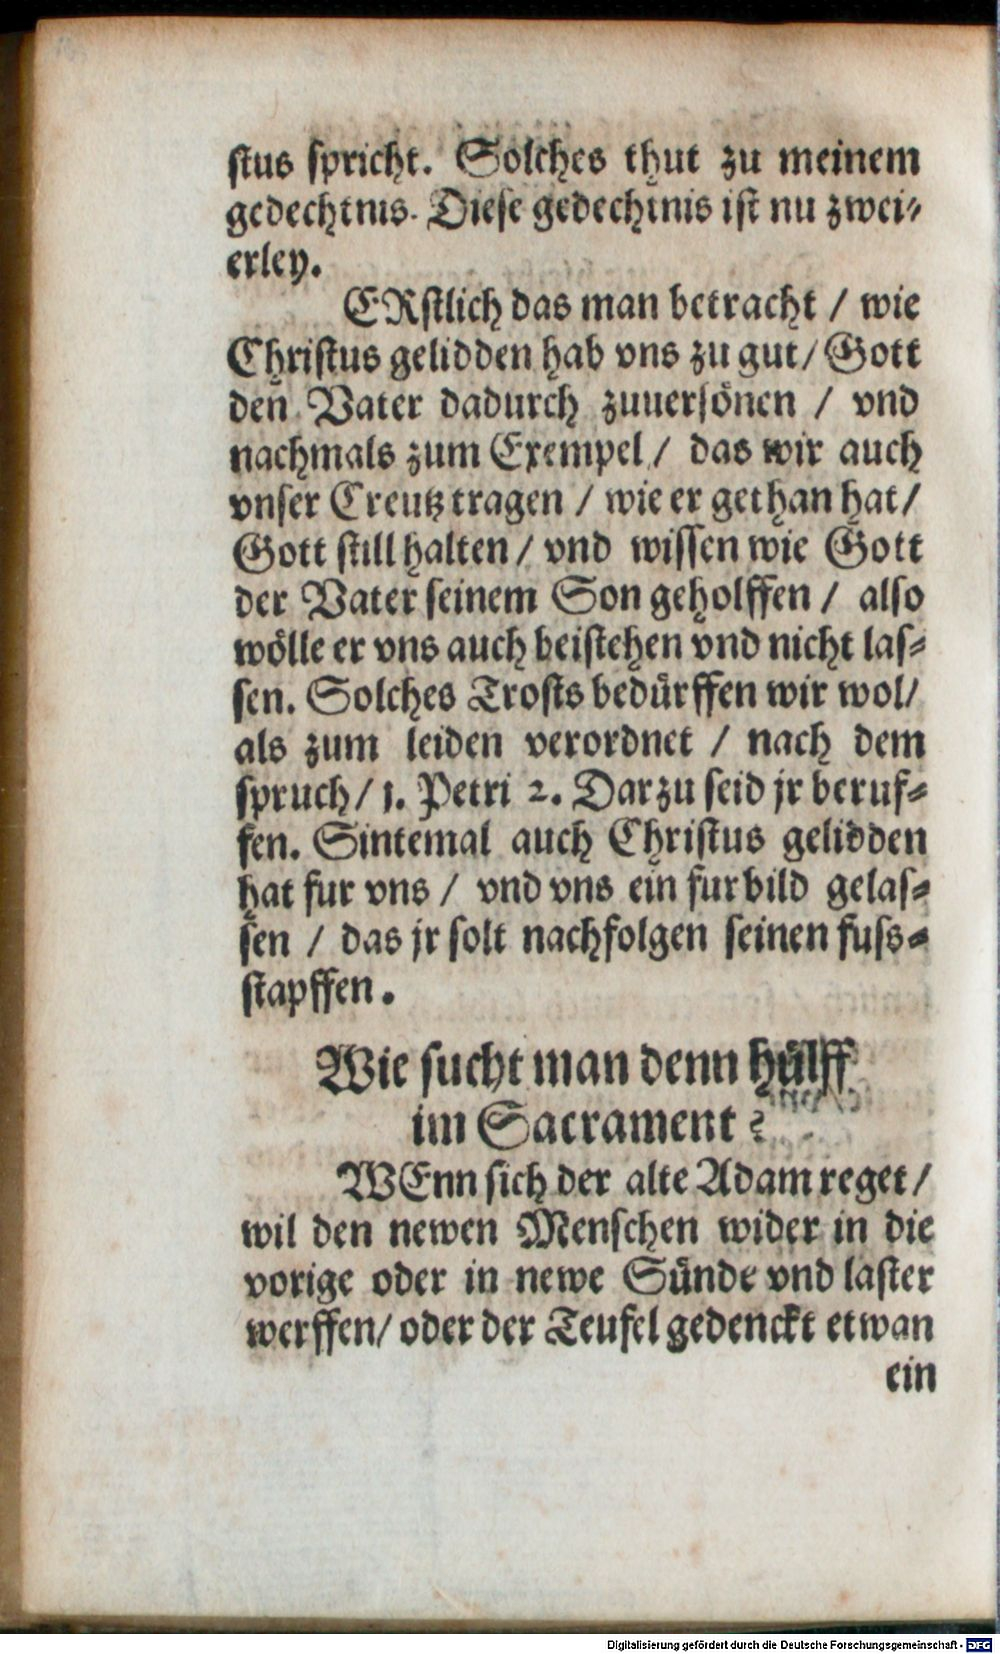 stus spricht. Solches thut zu meinem
gedechtnis. Diese gedechtnis ist nu zwei⸗
erley.
ERstlich das man betracht / wie
Christus gelidden hab vns zu gut / Gott
den Vater dadurch zuuersönen / vnd
nachmals zum Exempel / das wir auch
vnser Creutz tragen / wie er gethan hat /
Gott still halten / vnd wissen wie Gott
der Vater seinem Son geholffen / also
wölle er vns auch beistehen vnd nicht las⸗
sen. Solches Trosts bedürffen wir wol /
als zum leiden verordnet / nach dem
spruch / 1. Petri 2. Darzu seid jr beruf⸗
fen. Sintemal auch Christus gelidden
hat fur vns / vnd vns ein furbild gelas⸗
sen / das jr solt nachfolgen seinen fuss⸗
stapffen.
Wie sucht man denn hülff
im Sacrament?
WEnn sich der alte Adam reget /
wil den newen Menschen wider in die
vorige oder in newe Sünde vnd laster
werffen / oder der Teufel gedenckt etwan
ein
Digitalisierung gefördert durch die Deutsche Forschungsgemeinschaft - DFG